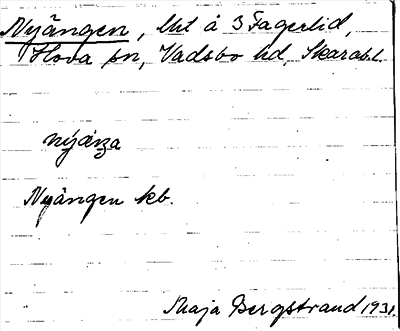 Nyängen, lht å 3 Fagerlid,
Hova sn, Vadsbo hd, Skarab.l.
nýäŋa
Nyängen kb.
Maja Bergstrand 1931.